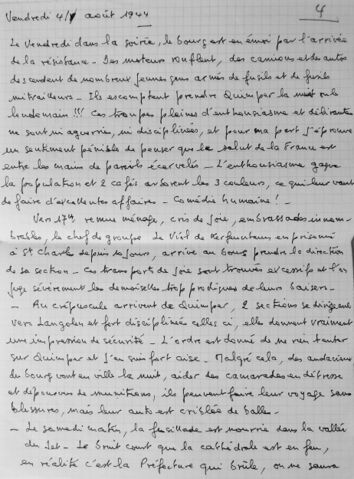 Vendredi 4/ août 1944
4
Le Vendredi dans la soirée, le bourg est en émoi par l'arrivée
de la résistance. Des moteurs ronflent, des camions et des autos
descendent de nombreux jeunes gens armés de fusils et de fusils
mitrailleurs - Ils escomptent prendre Quimper la nuit ou le
lendemain !!! Ces troupes pleines d'enthousiasme et délirantes
ne sont ni aguerries, ni disciplinées, et pour ma part j'éprouve
un sentiment pénible de penser que le salut de la France est
entre les mains de pareils écervelés - L'enthousiasme gagne
la population et 2 cafés arborent les 3 couleurs, ce qui leur vaut
de faire d'excellentes affaires - Comédie humaine ! -
Vers 17h remue ménage, cris de joie, embrassades innom-
brables, le chef de groupe Le Viol de Kerfeunteun en prisonnier
à St Charles depuis 10 jours, arrive au bourg prendre la direction
de sa section - Ces transports de joie sont trouvés excessifs et l'on
juge sévèrement les demoiselles trop prodigues de leurs baisers -
- Au crépuscule arrivent de Quimper, 2 sections se dirigeant
vers Langolen et fort disciplinées celles ci, elles donnent vraiment
une impression de sécurité - L'ordre est donné de ne rien tenter
sur Quimper et j'en suis fort aise. Malgré cela, des audacieux
du bourg vont en ville la nuit, aider des camarades en détresse
et dépourvus de munitions, ils peuvent faire leur voyage sans
blessures, mais leur auto est criblée de balles -
- Le samedi matin, la fusillade est nourrie dans la vallée
du Jet - Le bruit court que la cathédrale est en feu,
en réalité c'est la Préfecture qui brûle, on ne saura